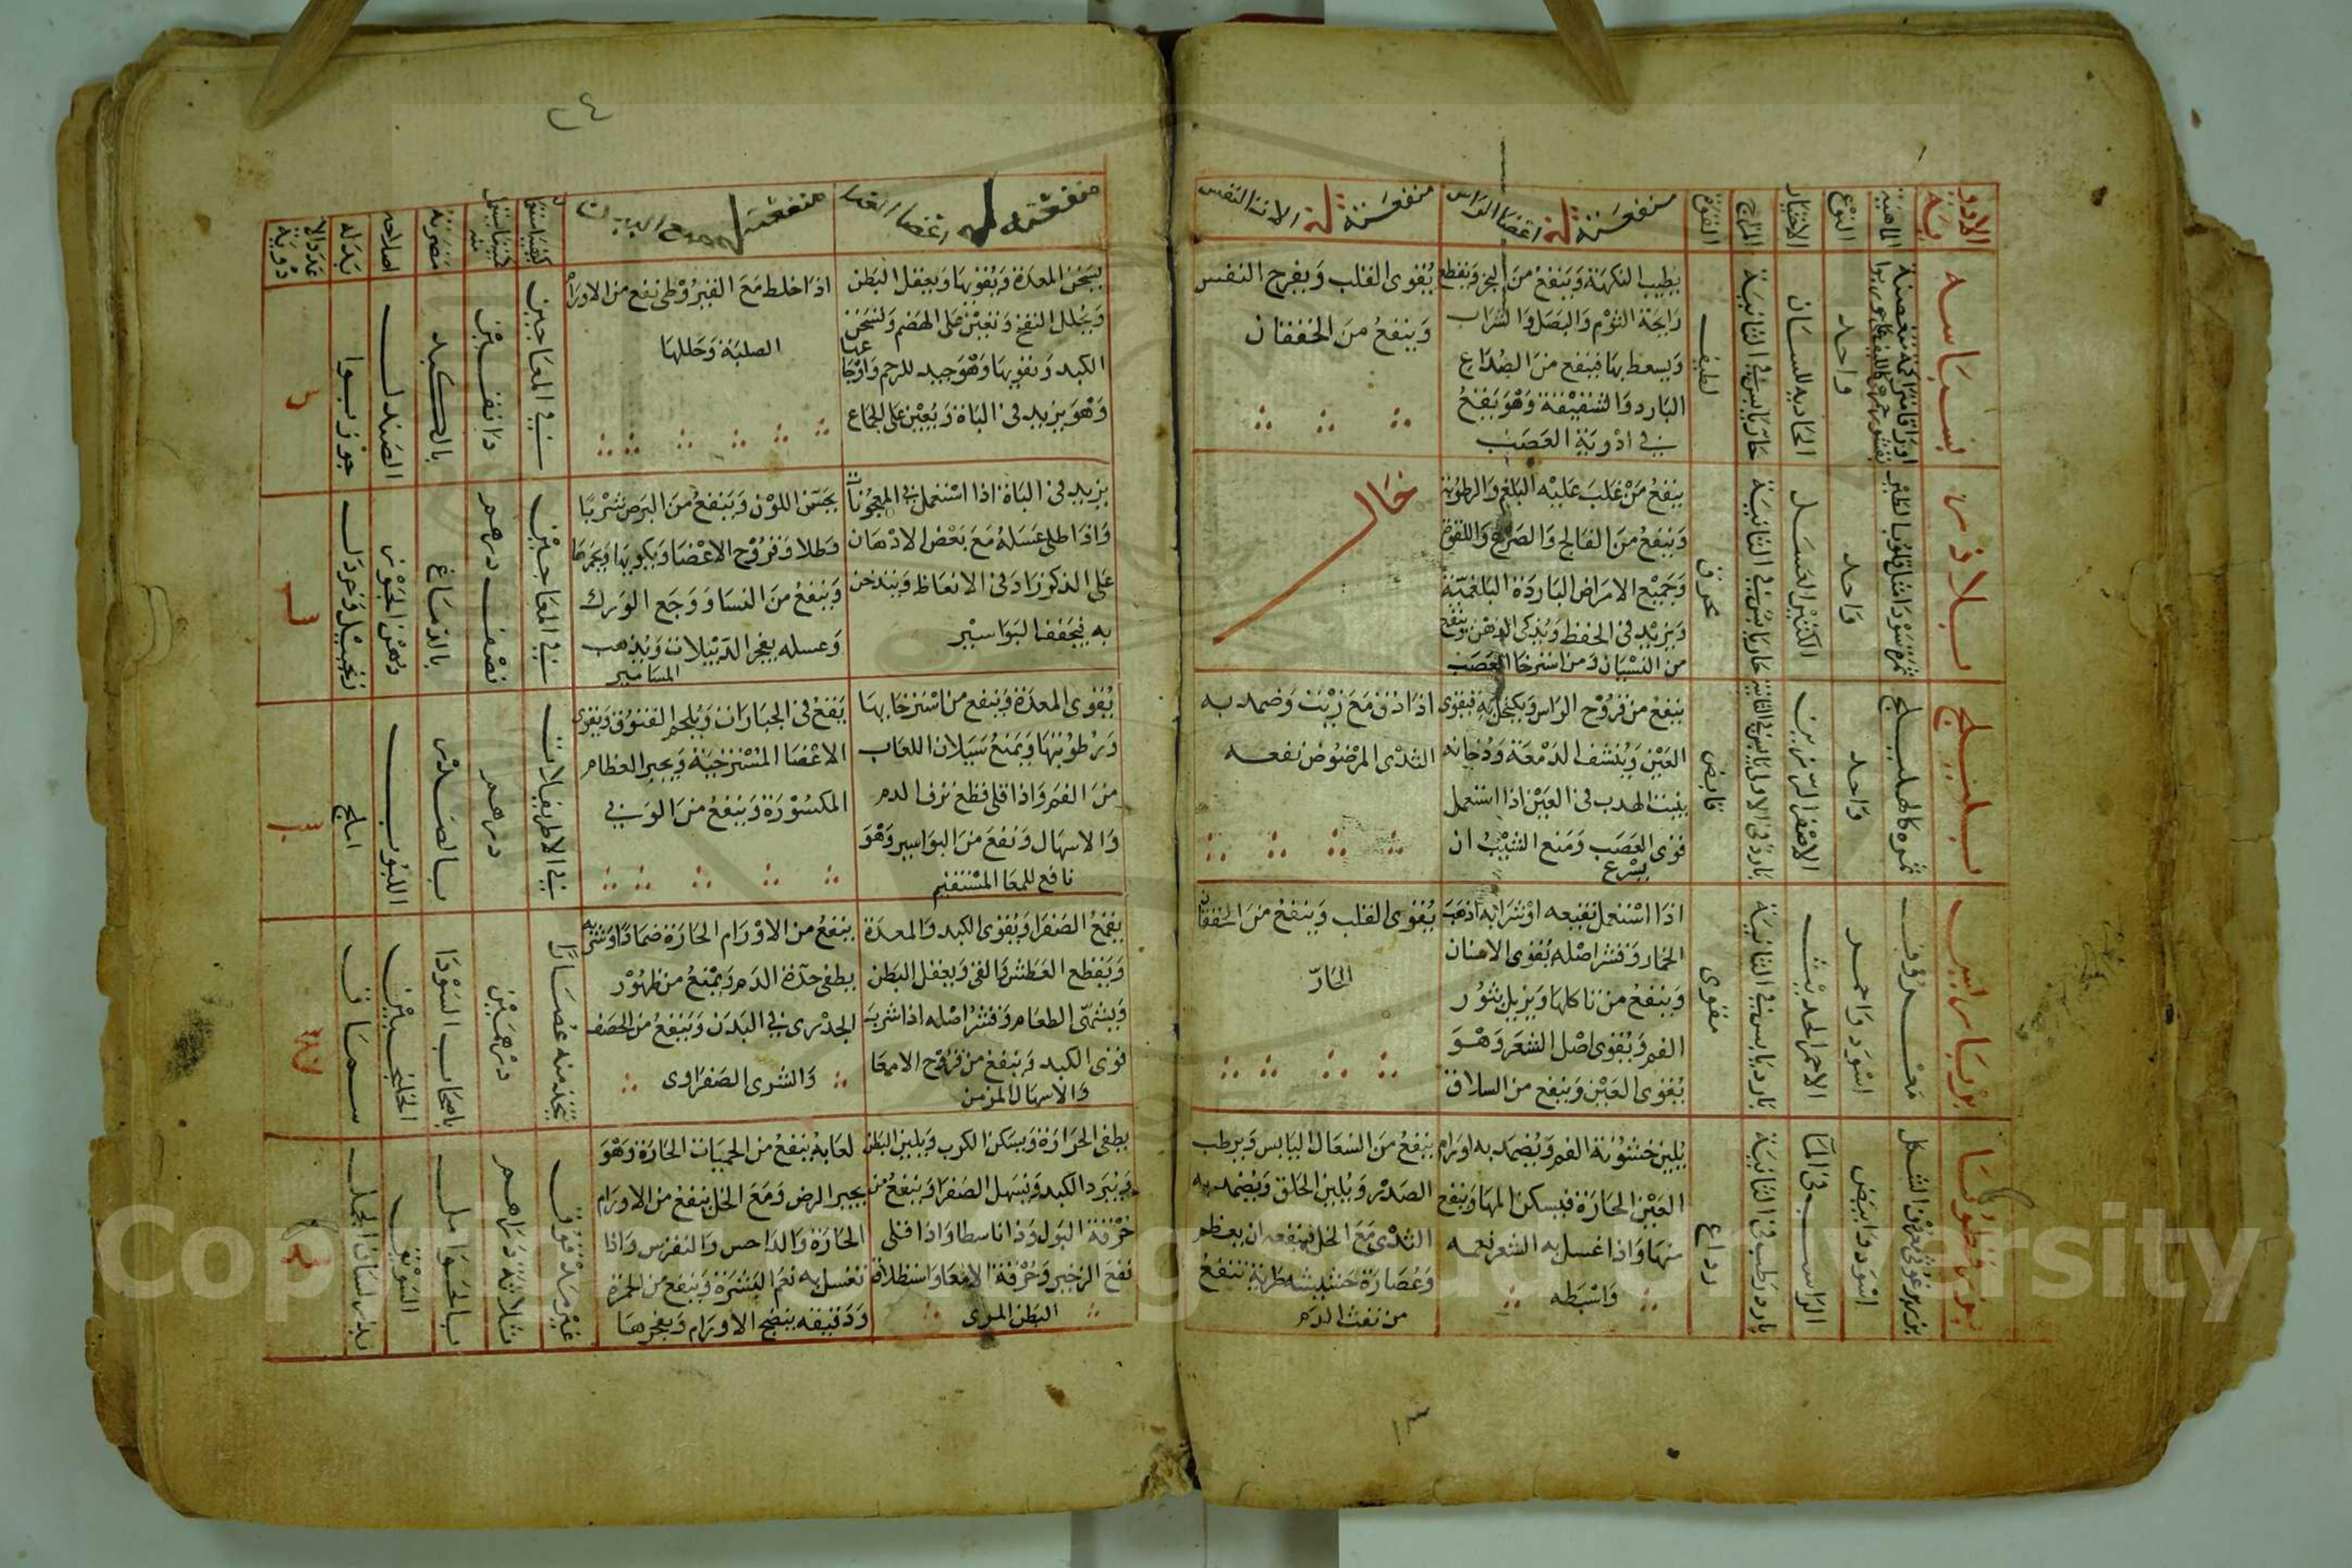 الادوية
الماهية
النوع
الاختيار
المزاج
القوة
منفعته في اعضا الراس
منفعته في الات النفس
بسباسة
واحد
الحادية للسان
حار يابس في الثانية
لطيف
يطيب النكهة وينفع من البخر ويقطع
رايحة الثوم والبصل والشراب
ويسعط بها فينفع من الصداع
البارد والشقيقة وهو ينفع
في ادوية العصب
يقوى القلب ويفرح النفس
وينفع من الخفقان
بلاذر
واحد
الكثير العسل
محرق
ينفع من غلب عليه البلغم والرطوبة
وينفع من الفالج والصرع واللقوة
وجميع الامراض الباردة البلغمية
ويزيد في الحفظ ويذكى الذهن وينفع
من النسيان ومن استرخا العصب
خال
بليلج
ثمره كالهليلج
واحد
قابض
ينفع من قروح الراس ويكتحل به فيقوى
العين وينشف الدمعة ودخانه
ينبت الهدب في العين اذا استعمل
قوى العصب ومنع الشيب ان
يسرع
اذا دق مع زيت وضمد به
الثدى المرضوض نفعه
برباريس
معروف
اسود واحمر
الاحمر الحديث
بارد يابس في الثانية
مقوى
اذا استعمل نقيعه او شرابه اذهب
الخمار وقشر اصله يقوى الاسنان
وينفع من تاكلها ويزيل بثور
الفم ويقوى اصل الشعر وهو
يقوى العين وينفع من السلاق
يقوى القلب وينفع من الخفقان
الحار
بزر قطونا
اسود وابيض
الراسب في الما
بارد رطب في الثانية
رداع
يلين خشونة الفم ويضمد به اورام
العين الحارة فيسكن المها وينفع
منها واذا غسل به الشعر نعمه
واسبطه
ينفع من السعال اليابس ويرطب
الصدر ويلين الحلق ويضمد به
الثدى مع الخل فينفعه ان يعظم
وعصارة حشيشه طرية تنفع
من نفث الدم
١٣
٤٣
منفعته في اعضا الغذا
منفعته في جميع البدن
مضرته
اصلاحه
بدله
عدد الادوية
يسخن المعدة ويقويها ويعقل البطن
ويحلل النفخ ونعين على الهضم ولسخن
الكبد ونقويها وهو جيد للرحم واوجاعها
وهو يزيد في الباة ويعين على الجماع
اذا خلط مع القيروطى نفع من الاورام
الصلبة وحللها
في المعاجين
دانقين
بالكبد
الصندل
جوز بوا
يزيد في الباة اذا استعمل في المعجونات
واذا طلى عسله مع بعض الادهان
على الذكر زاد في الانعاظ ويتدخن
به فيجفف البواسير
يحسن اللون وينفع من البرص شربا
وطلا وقروح الاعضا ويكويها ويحمرها
وينفع من النسا ووجع الورك
وعسله يفجر الدبيلات ويذهب
المسامير
في المعاجين
نصف درهم
بالدماغ
ودهن الجوز
زنجبيل وخردل
يقوى المعدة وينفع من استرخايها
ورطوبتها ويمنع سيلان اللعاب
من الفم واذا قلى قطع نزف الدم
والاسهال ونفع من البواسير وهو
نافع للمعا المستقيم
ينفع في الجبارات ويلحم الفتوق ويقوى
الاعضا المسترخية ويجبر العظام
المكسورة وينفع من الوثي
في الاطريفلات
درهم
بالصدر
اللبوب
املج
يقمع الصفرا ويقوى الكبد والمعدة
ويقطع العطش والقى ويعقل البطن
ويشهى الطعام وقشر اصله اذا شرب
قوى الكبد وينفع من قروح الامعا
والاسهال المزمن
ينفع من الاورام الحارة ضمادا وشربه
يطفى حدة الدم ويمنع من ظهور
الجدرى في البدن وينفع من الحصف
والشرى الصفراوى
يتخذ منه عصارا
درهمين
باصحاب السودا
الخلنجبين
سماق
يطفى الحرارة ويسكن الكرب ويلين البطن
ويبرد الكبد ويسهل الصفرا وينفع من
حرقة البول وذاناسطا واذا قلى
نفع الزحير وحرقة الامعا واستطلاق
البطن المرى
لعابه ينفع من الحميات الحارة وهو
يجبر الرض ومع الخل ينفع من الاورام
الحارة والداحس والنقرس واذا
تغسل به نعم البشرة وينفع من الحمرة
ودقيقه ينضج الاورام ويفجرها
غير مدقوق
ثلاثة دراهم
بالحوامل
السويق
بزر لسان الحمل
Copyright © King Saud University